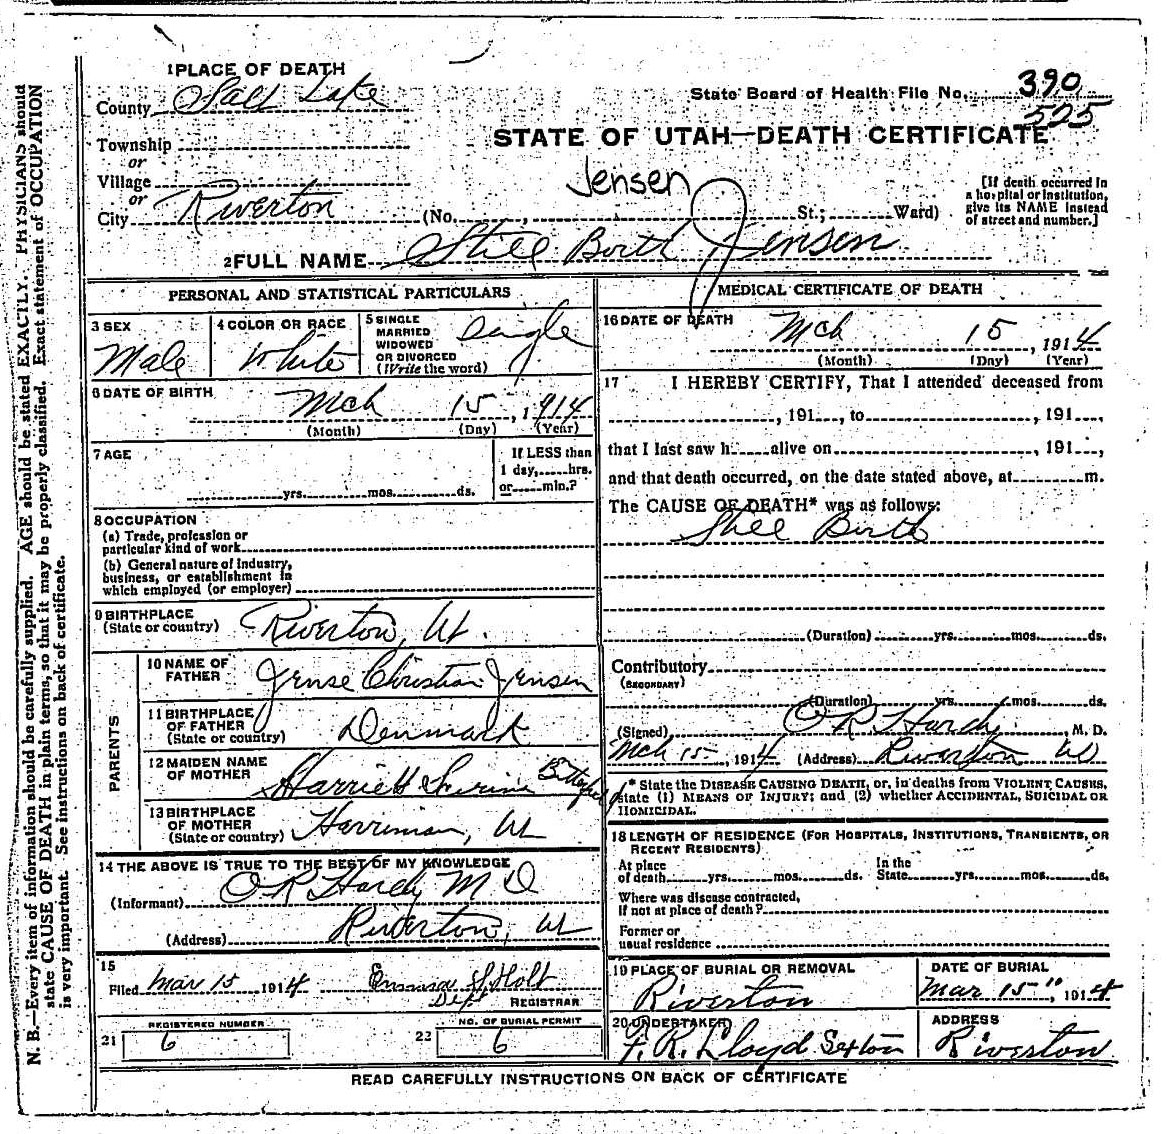 1 PLACE OF DEATH
County Salt Lake
State Board of Health File No. 390
525
STATE OF UTAH—DEATH CERTIFICATE
Township
or
Village
or
City Riverton (No. , St.; Ward)
Jensen
[If death occurred in a hospital or institution, give its NAME instead of street and number.]
2 FULL NAME Still Birth Jensen
PERSONAL AND STATISTICAL PARTICULARS
3 SEX
Male
4 COLOR OR RACE
White
5 SINGLE
MARRIED
WIDOWED
OR DIVORCED
(Write the word)
Single
6 DATE OF BIRTH
Mch 15, 1914
(Month) (Day) (Year)
7 AGE
yrs. mos. ds.
If LESS than
1 day, hrs.
or min.?
8 OCCUPATION
(a) Trade, profession or
particular kind of work
(b) General nature of industry,
business, or establishment in
which employed (or employer)
9 BIRTHPLACE
(State or country)
Riverton, Ut.
PARENTS
10 NAME OF
FATHER
Jense Christian Jensen
11 BIRTHPLACE
OF FATHER
(State or country)
Denmark
12 MAIDEN NAME
OF MOTHER
Harriett
13 BIRTHPLACE
OF MOTHER
(State or country)
Herriman, Ut
14 THE ABOVE IS TRUE TO THE BEST OF MY KNOWLEDGE
(Informant) O R Hardy M D
(Address) Riverton, Ut
15
Filed Mar 15 1914 Holt
Dept REGISTRAR
REGISTERED NUMBER
21 6
NO. OF BURIAL PERMIT
22 6
MEDICAL CERTIFICATE OF DEATH
16 DATE OF DEATH
Mch 15, 1914
(Month) (Day) (Year)
17 I HEREBY CERTIFY, That I attended deceased from
, 191 , to , 191 ,
that I last saw h alive on , 191 ,
and that death occurred, on the date stated above, at m.
The CAUSE OF DEATH* was as follows:
Still Birth
(Duration) yrs. mos. ds.
Contributory
(SECONDARY)
(Duration) yrs. mos. ds.
(Signed) O R Hardy, M. D.
Mch 15, 1914 (Address) Riverton Ut
* State the DISEASE CAUSING DEATH, or, in deaths from VIOLENT CAUSES,
state (1) MEANS OF INJURY; and (2) whether ACCIDENTAL, SUICIDAL OR
HOMICIDAL.
18 LENGTH OF RESIDENCE (FOR HOSPITALS, INSTITUTIONS, TRANSIENTS, OR
RECENT RESIDENTS)
At place
of death yrs. mos. ds.
In the
State yrs. mos. ds.
Where was disease contracted,
if not at place of death?
Former or
usual residence
19 PLACE OF BURIAL OR REMOVAL
Riverton
DATE OF BURIAL
Mar 15", 1914
20 UNDERTAKER
F. R. Lloyd Sexton
ADDRESS
Riverton
READ CAREFULLY INSTRUCTIONS ON BACK OF CERTIFICATE
N. B.—Every item of information should be carefully supplied. AGE should be stated EXACTLY. PHYSICIANS should
state CAUSE OF DEATH in plain terms, so that it may be properly classified. Exact statement of OCCUPATION
is very important. See instructions on back of certificate.